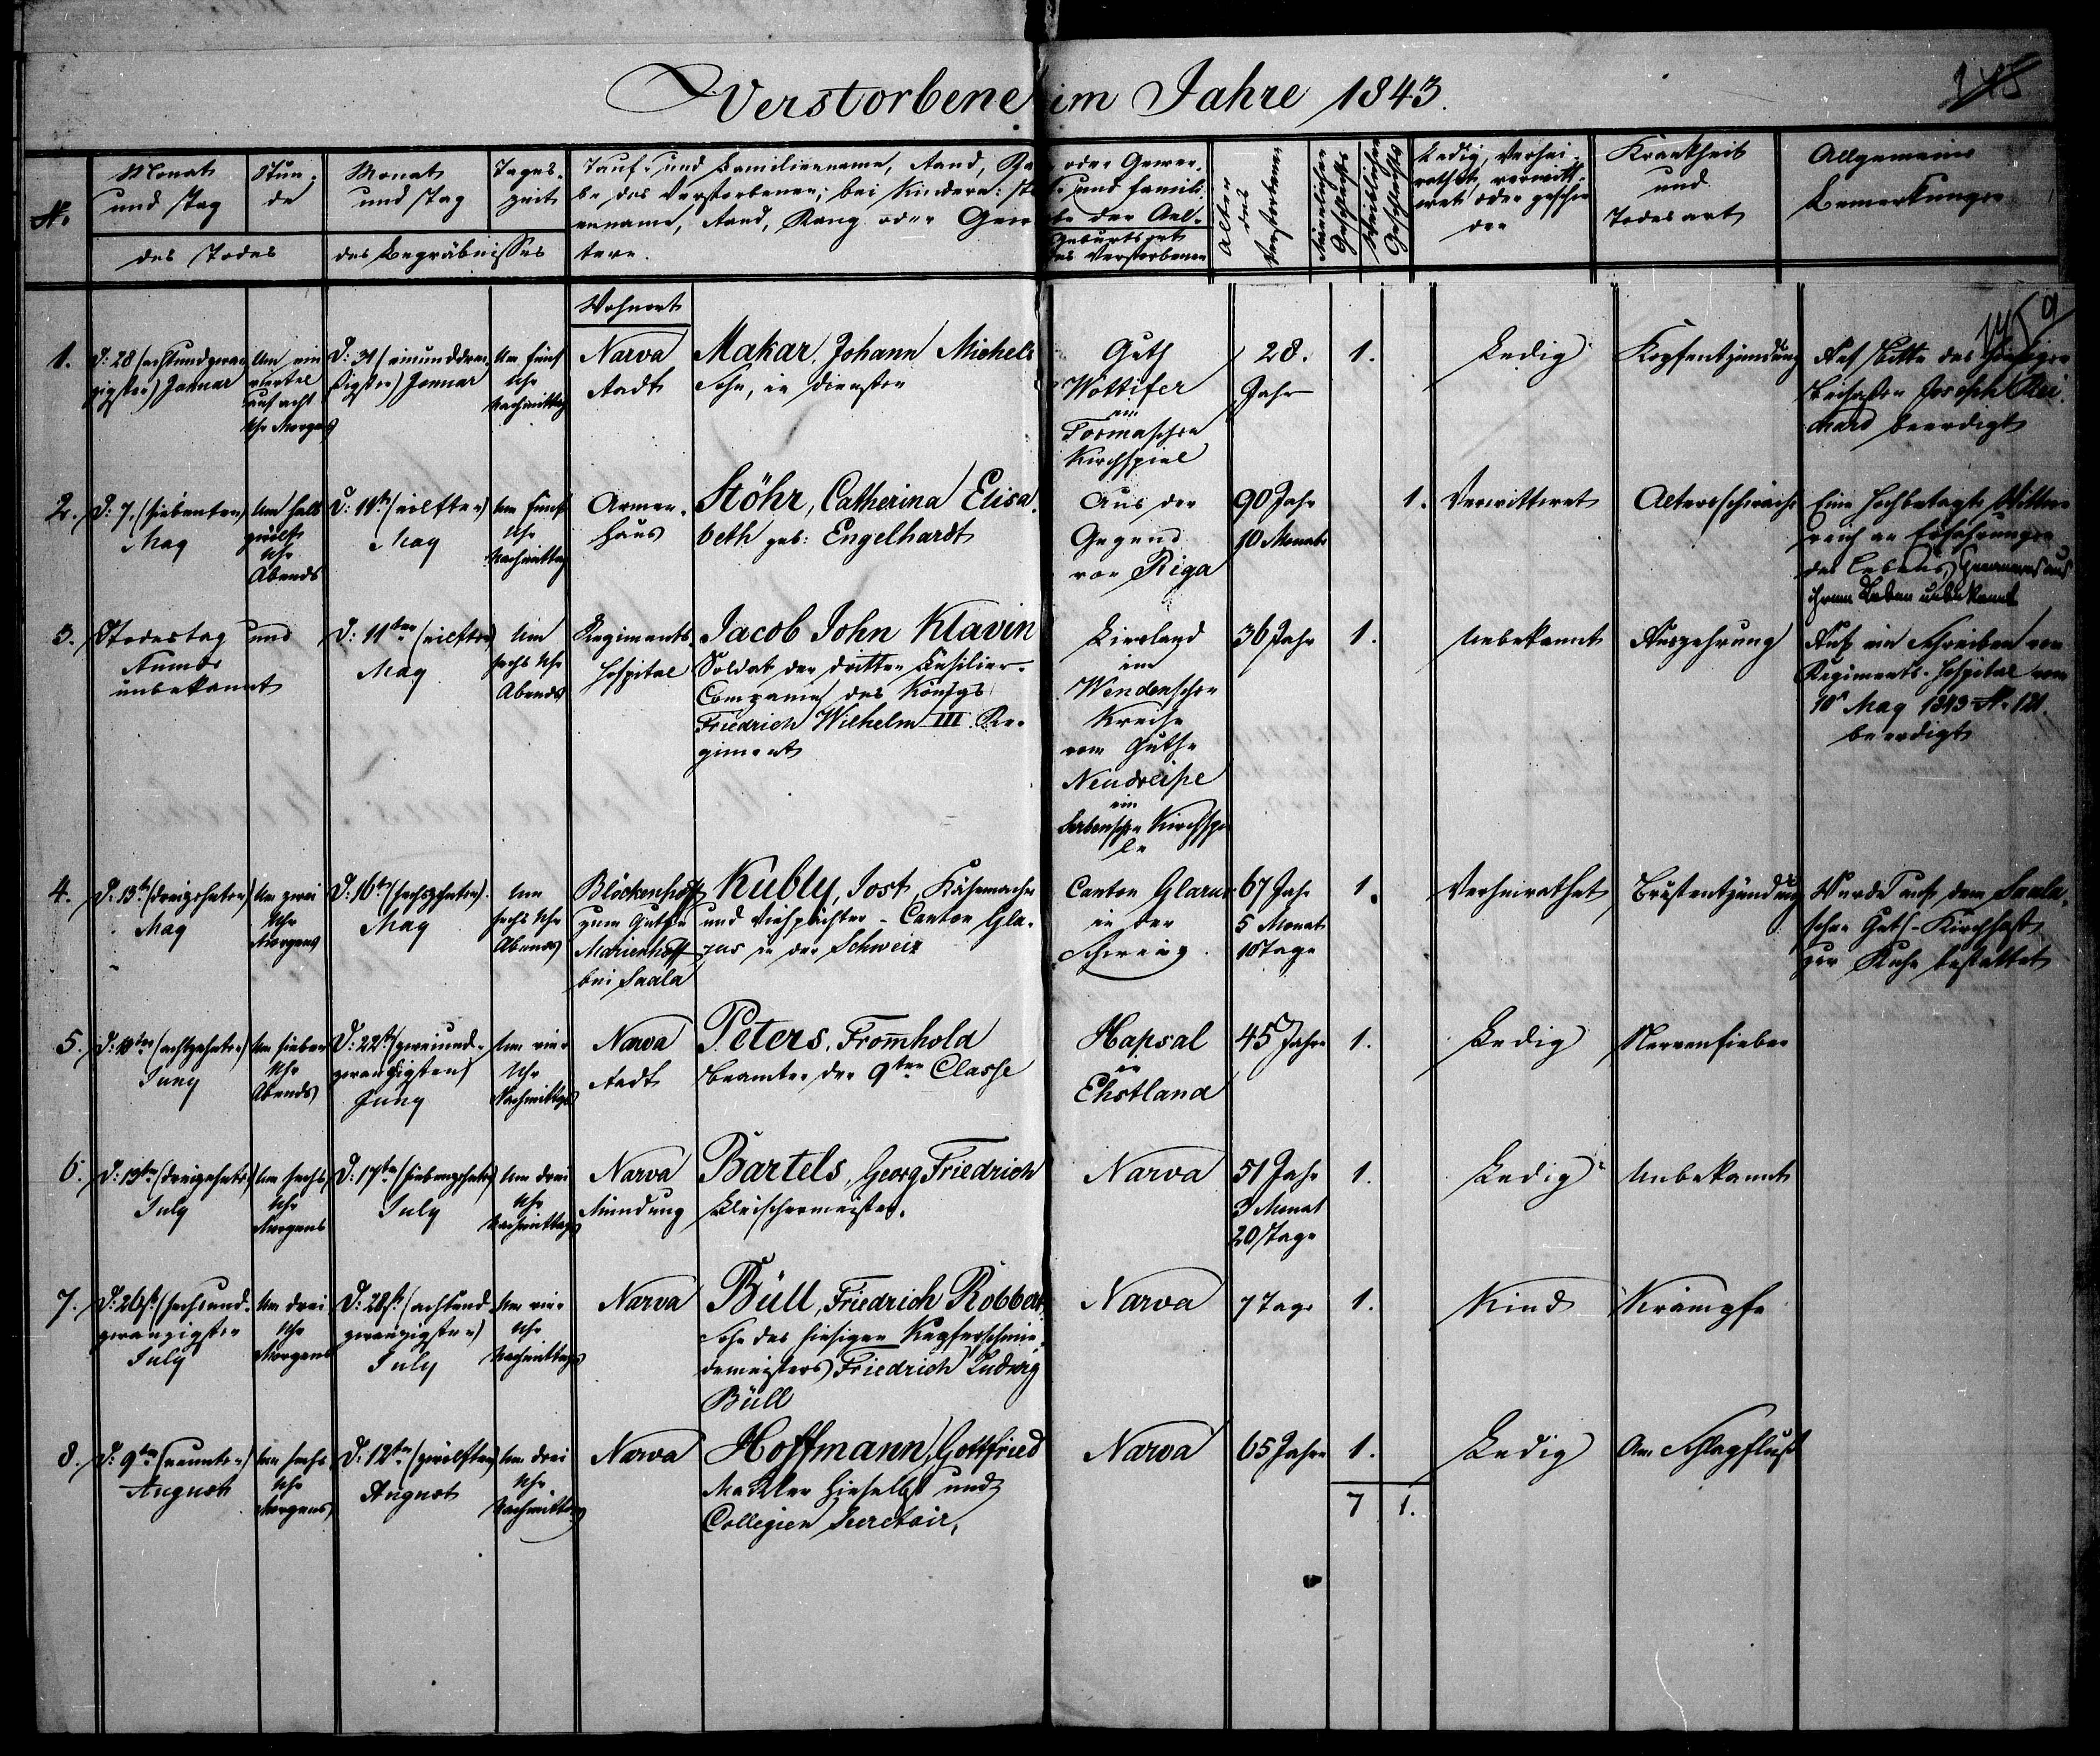 Verstorbene im Jahre 1843.
No
Monat
und Tag
Stun-
de
des Todes
Monat
und Tag
Tages-
zeit
des Begräbnisses
Tauf- und Familienname, Stand, Ra oder Gewer-
be des Verstorbenen; bei Kindern: und Famili-
enname, Stand, Rang oder Gewerbe der Ael-
tern.
Geburtsort
des Verstorbenen
Alter
des
Verstorbenen
Männlichen
Geschlechts
Weiblichen
Geschlechts
Ledig, Verhei-
rathet, verwitt-
wet oder geschie-
den
Krankheit
und
Todesart
Allgemeine
Bemerkungen
Wohnort
1.
D: 28 (achtundzwan-
zigsten) Januar
Um ein
viertel
auf acht
Uhr Morgens
D: 31 (einunddrei-
ßigsten) Januar
Um fünf
Uhr
Nachmittag
Narva
Stadt
Makar, Johann Michels
Sohn, in Diensten
Guth
Wottifer
im
Tormaschen
Kirchspiel
28.
Jahr
1.
Ledig
Kopfentzündung
Auf Bitte des hiesigen
Joseph
beerdigt
2.
D: 7. (siebenten)
May
Um halb
zwölf
Uhr
Abends
D: 11ten (eilften)
May
Um fünf
Uhr
Nachmittag
Armen-
haus
Stöhr, Catharina Elisa-
beth geb: Engelhardt
Aus der
Gegend
von Riga
90 Jahr
10 Monate
1.
Verwittwet
Altersschwäche
Eine hochbetagte Wittwe
reich an Erfahrungen
des Lebens, aus
ihrem Leben unbekannt
3.
Todestag und
Stunde
unbekannt
D: 11ten (eilften)
May
Um
sechs Uhr
Abends
Regiments-
Hospital
Jacob John Klavin
Soldat der dritten Füsilier-
Compagnie des Königs
Friedrich Wilhelm III Re-
giments
Livland
im
Wendenschen
Kreise
vom Guthe
Neudreise
im
Serbenschen Kirchspie-
le
36 Jahr
1.
Unbekannt
Auszehrung
Auf ein Schreiben vom
Regiments-Hospital vom
10n May 1843 No 121.
beerdigt
4.
D: 13t (dreizehnten)
May
Um zwei
Uhr
Morgens
D: 16ten (sechszehnten)
May
Um
sechs Uhr
Abends
Blöckenhoff
zum Guthe
Marienhoff
bei Saala
Kubly, Jost, Käsemacher
und Viehpächter - Canton Gla-
rus in der Schweiz
Canton Glarus
in der
Schweiz
67 Jahr
5 Monat
10 Tage
1.
Verheirathet
Brustentzündung
Wurde auf dem Saala-
schen Guts-Kirchhofe
zur Ruhe bestattet
5.
D: 18ten (achtzehnten)
Juny
Um sieben
Uhr
Abends
D: 22st (zweiund-
zwanzigsten)
Juny
Um vier
Uhr
Nachmittgs
Narva
Stadt
Peters, Fromhold
Beamter der 9ten Classe
Hapsal
in
Ehstland
45 Jahre
1.
Ledig
Nervenfieber
6.
D: 13ten (dreizehnten)
July
Um sechs
Uhr
Morgens
D: 17ten (siebenzehnten)
July
Um drei
Uhr
Nachmittags
Narva
Mündung
Bartels, Georg Friedrich
Fleischermeister.
Narva
51 Jahr
3 Monat
20 Tage
1.
Ledig
Unbekannt
7.
D: 26st. (sechsund-
zwanzigsten
July
Um drei
Uhr
Morgens
D: 28st. (achtund-
zwanzigsten)
July
Um vier
Uhr
Nachmittags
Narva
Büll, Friedrich Robbert
Sohn des hiesigen Kupferschmie-
demeisters Friedrich Ludwig
Büll
Narva
7 Tage
1.
Kind
Krämpfe
8.
D: 9ten (neunten)
August
Um sechs
Uhr
Morgens
D: 12ten (zwölften)
August
Um drei
Uhr
Nachmittag
Narva
Hoffmann, Gottfried
Mackler hieselbst und
Collegien Secretair,
Narva
65 Jahre
1.
Ledig
Am Schlagfluß
7
1.